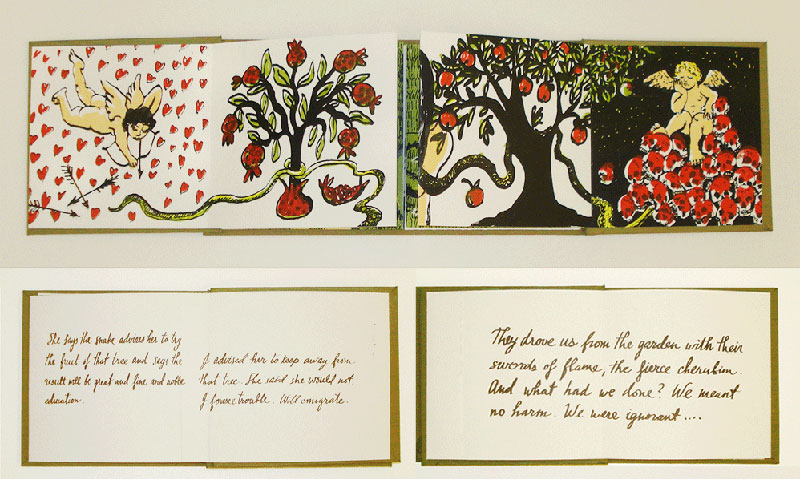 She says the snake advises her to try
the fruit of that tree and says the
result will be great and fine and noble
education.
I advised her to keep away from
that tree. She said she would not
I foresee trouble. Will emigrate.
They drove us from the garden with their
swords of flame, the fierce cherubim.
And what had we done? We meant
no harm. We were ignorant....